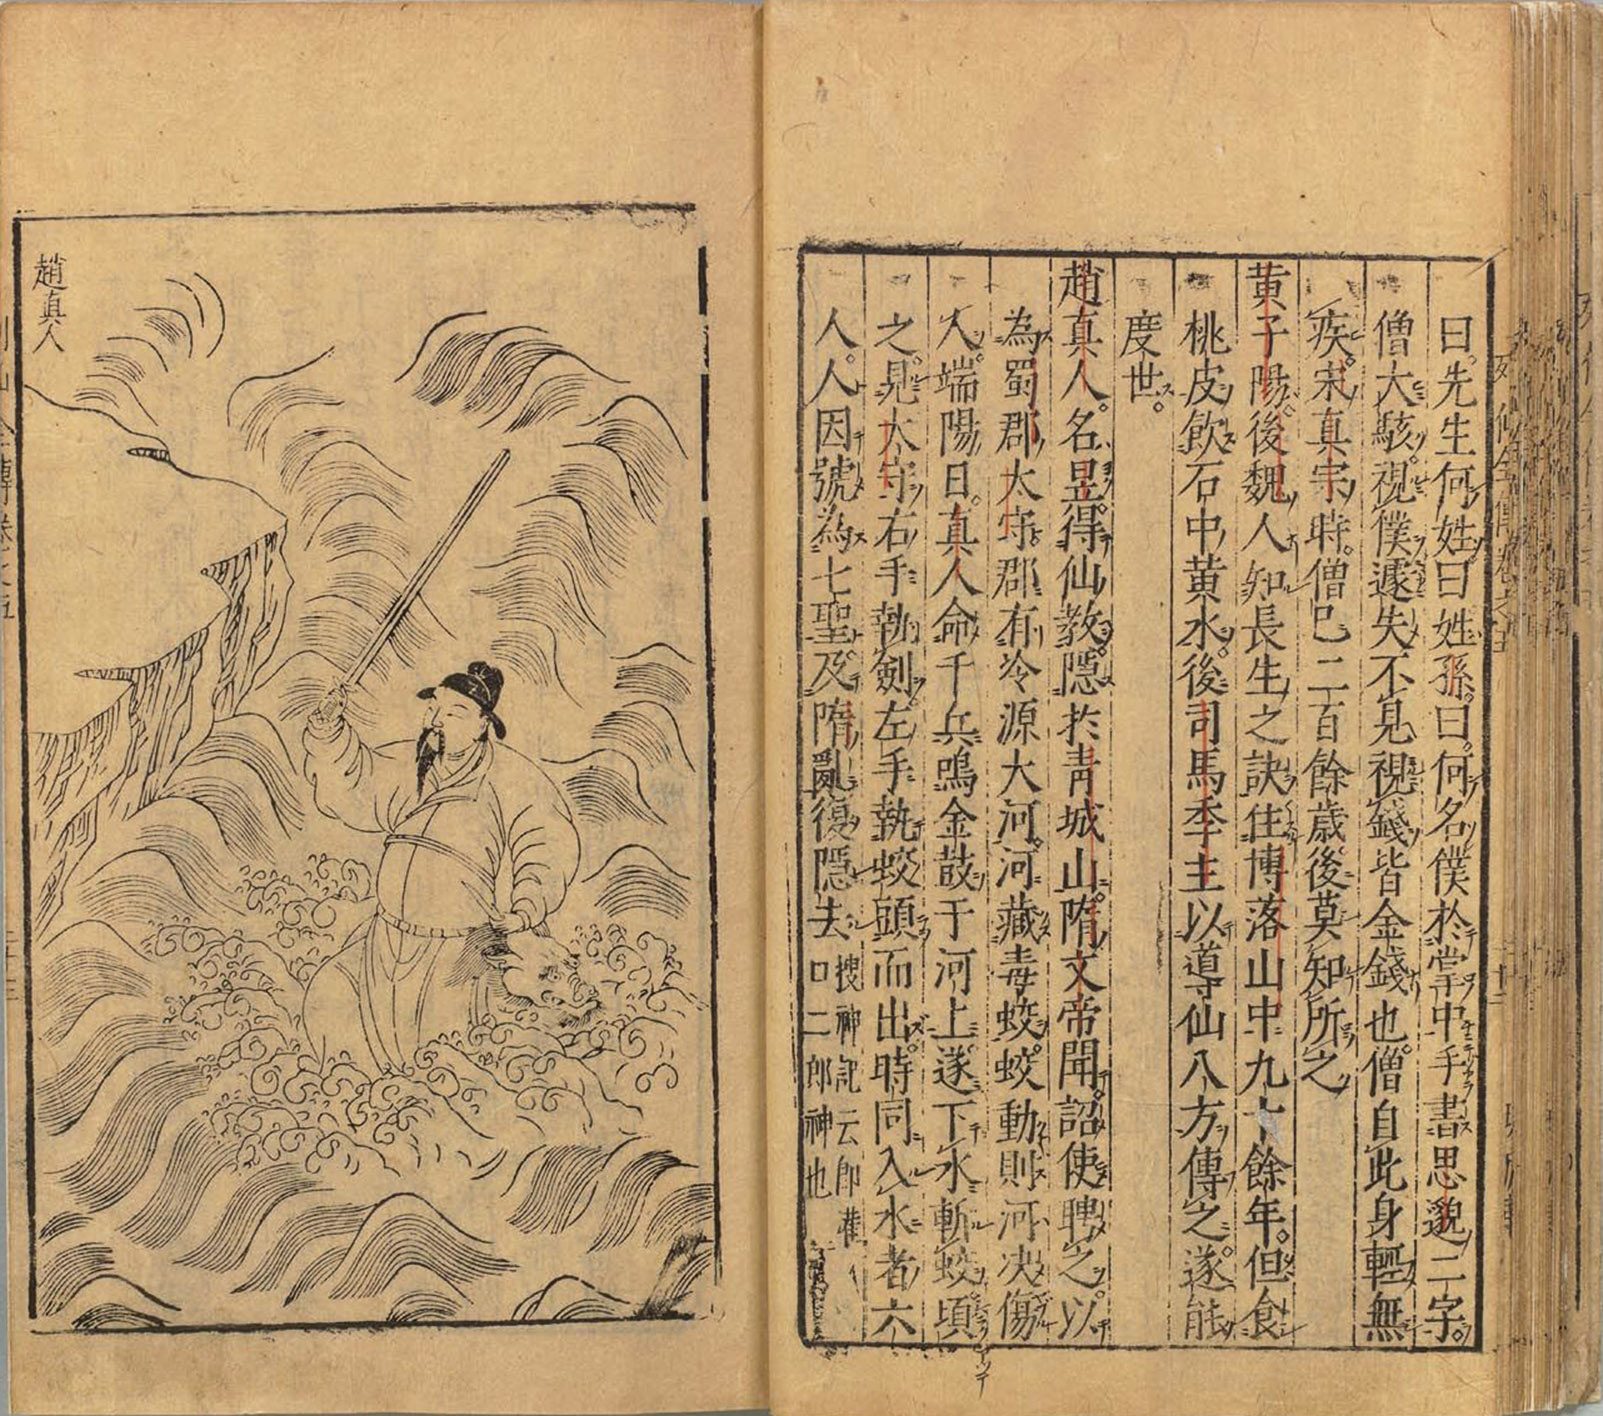 曰先生何姓曰姓孫曰何名僕於掌中手書思邈二字
僧大駭視僕遽失不見視錢皆金錢也僧自此身輕無
疾宋真宗時僧已二百餘歲後莫知所之
黃子陽後魏人知長生之訣住博落山中九十餘年但食
桃皮飲石中黃水後司馬季主以導仙八方傳之遂能
度世
趙真人名昱得仙教隱於青城山隋文帝聞詔使聘之以
為蜀郡太守郡有冷源大河河藏毒蛟蛟動則河决傷
人端陽日真人命千兵鳴金鼓于河上遂下水斬蛟頃
之見太守右手執劍左手執蛟頭而出時同入水者六
人人因號為七聖及隋亂復隱去
搜神記云即灌
口二郎神也
趙真人